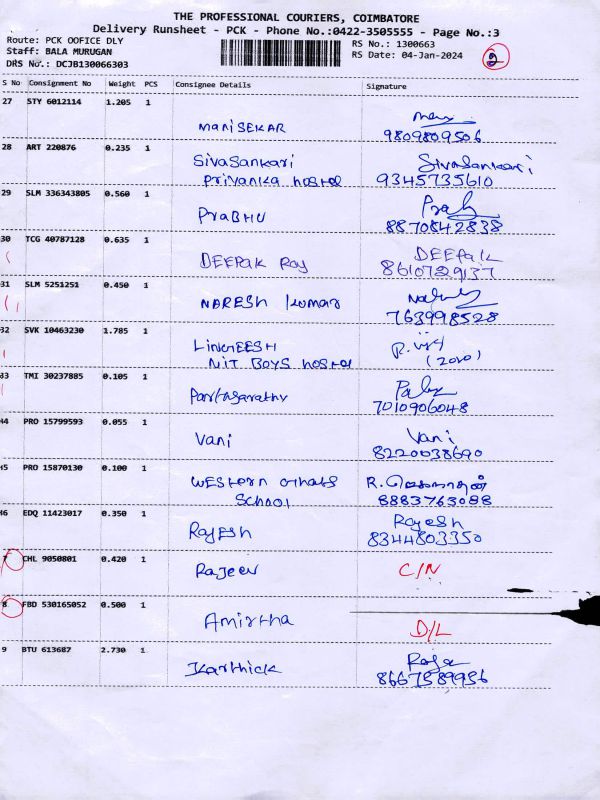 THE PROFESSIONAL COURIERS, COIMBATORE
Delivery Runsheet - PCK - Phone No.:0422-3505555 - Page No.:3
Route: PCK OOFICE DLY
RS No.: 1300663
Staff: BALA MURUGAN
RS Date: 04-Jan-2024
DRS No.: DCJB130066303
2
S No Consignment No Weight PCS Consignee Details Signature
27 STY 6012114 1.205 1
ManiSEKAR
9809809506
28 ART 220876 0.235 1
Sivasankari Sivasankari
Priyanka hostel 9345735610
29 SLM 336343805 0.560 1
PRABHU
8870842838
30 TCG 40787128 0.635 1
DEEPAK Raj DEEPAK
8610729137
31 SLM 5251251 0.450 1
NARESH kumar
763998528
32 SVK 10463230 1.785 1
NIT BOYS hostel
33 TMI 30237885 0.105 1
Parthasarathy
7010906048
34 PRO 15799593 0.055 1
Vani Vani
8220038690
H5 PRO 15870130 0.100 1
WESTERN
SCHOOL 8883763088
H6 EDQ 11423017 0.350 1
Rajesh Rajesh
8344803350
7 CHL 9050801 0.420 1
Rajeev C/N
8 FBD 530165052 0.500 1
Amirtha D/L
9 BTU 613687 2.730 1
Karthick Raja
8667589956